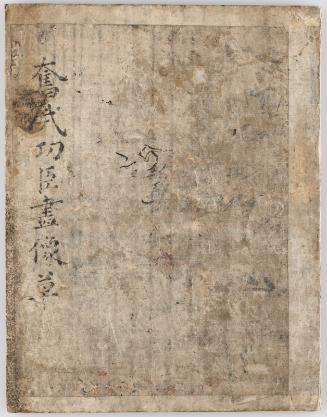 奮武功臣畫像草